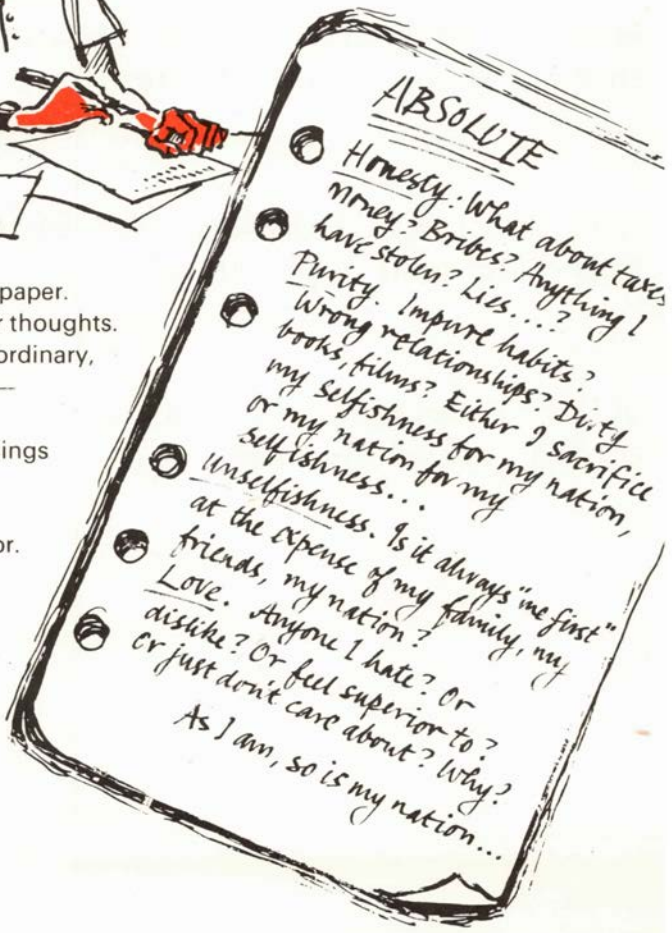 paper.
r thoughts.
ordinary,
ings
or.
ABSOLUTE
Honesty: What about taxes
money? Bribes? Anything I
have stolen? Lies....?
Purity. Impure habits?
Wrong relationships? Dirty
books, films? Either I sacrifice
my selfishness for my nation,
or my nation for my
selfishness...
Unselfishness. Is it always "me first"
at the expense of my family, my
friends, my nation?
Love. Anyone I hate? Or
dislike? Or feel superior to?
Or just don't care about? Why?
As I am, so is my nation...